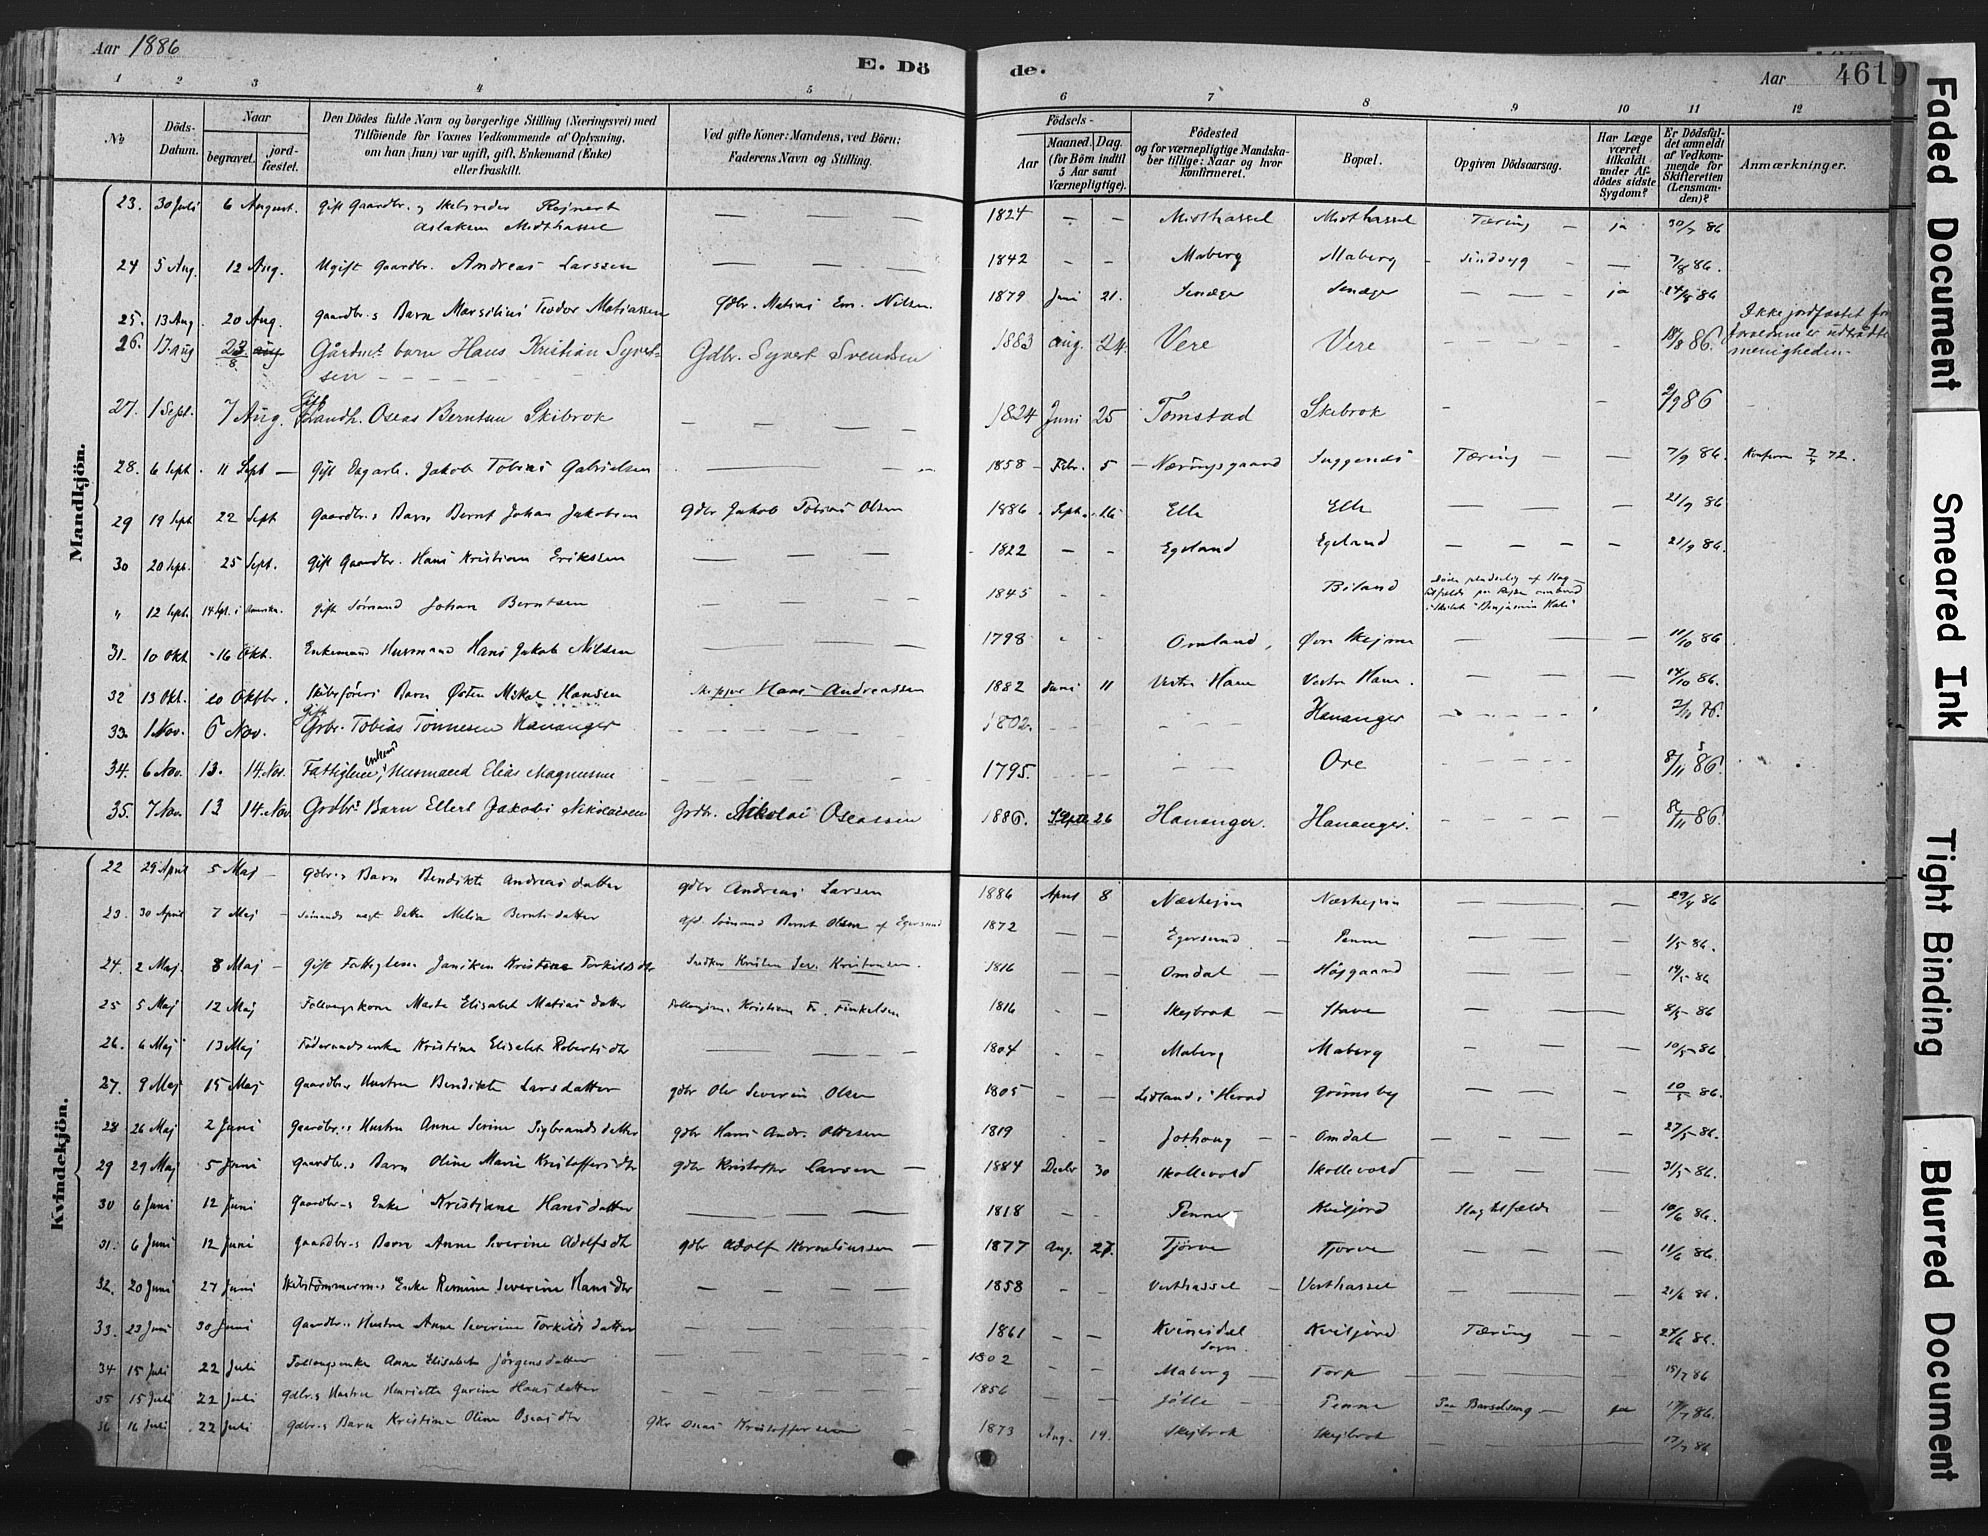 Aar 1886
E. Dö de.
Aar 4619
1 2 3 4 5 6 7 8 9 10 11 12
No
Döds-Datum.
Naar
begravet.
jord-fæstet.
Den Dödes fulde Navn og borgerlige Stilling (Næringsvei) med
Tilföiende for Voxnes Vedkommende af Oplysning,
om han (hun) var ugift, gift, Enkemand (Enke)
eller fraskilt.
Ved gifte Koner: Mandens, ved Börn:
Faderens Navn og Stilling.
Födsels-
Aar
Maaned. Dag.
(for Börn indtil
5 Aar samt
Værnepligtige).
Födested
og for værnepligtige Mandska-
ber tillige: Naar og hvor
konfirmeret.
Bopæl.
Opgiven Dödsaarsag.
Har Læge
været
tilkaldt
under Af-
dödes sidste
Sygdom?
Er Dödsfal-
det anmeldt
af Vedkom-
mende for
Skifteretten
(Lensman-
den)?
Anmærkninger.
Mandkjön.
23. 30 Juli 6 August. Gift Gaardbr. og Skibsreder Rejnert — — 1824 — — Midthassel Midthassel Tæring — ja 30/7 86
Aslaksen Midthassel
24 5 Aug. 12 Aug. Ugift Gaardbr. Andreas Larssen — — 1842 — — Maberg Maberg — sindssyg — — 7/8 86.
25. 13 Aug. 20 Aug. Gaardbr.s Barn Marsilius Teodor Matiassen Gdbr. Matias Em. Nilsen. 1879 Juni 21. — — ja 24/8 86
26. 17 aug 23/8 aug Gårdm. barn Hans Kristian Syvert- Gdbr. Syvert Svendsen 1883 aug. 24. Vere Vere 18/8 86. Ikke jordfæstet
sen forældrene er udtrådte
menigheden.
27. 1 Sept. 7 Aug. Gift Gaardb. Oseas Berntsen Skibrok — — 1824 Juni 25 Tomstad Skibrok — — 2/9 86
28. 6 Sept. 11 Sept — Gift Dagarb. Jakob Tobias Gabrielsen — — 1858 Febr. 5 Næringsgaard Tæring — — 7/9 86. Konfirm 7/4 72.
29 19 Sept 22 Sept Gaardbr.s Barn Bernt Johan Jakobsen Gdbr Jakob Tobias Olsen 1886. Sept. 16 Elle Elle — — — 21/9 86
30 20 Sept. 25 Sept. Gift Gaardbr. Hans Kristian Erikssen — — 1822 — — Egeland Egeland — — — 21/9 86.
" 12 Sept. 14 Spt. i Amerika. Gift Sømand Johan Berntsen — — 1845 — — Biland
31. 10 Okt 16 Okt. Enkemand Husmand Hans Jakob Nilssen — — 1798 - - Omland, Øvre Skejme — — 11/10 86
32 13 Okt. 20 Oktbr. Skibsførers Barn Østen Mikal Hanssen Skipper Hans Andreassen 1882 Juni 11 Vestre Ham Vestre Ham. — — — 14/10 86.
33. 1 Nov. 6 Nov. Gift Grbr. Tobias Tønnesen Hananger — — 1802. — — — Hananger — — 2/11 86.
34. 6 Nov. 13. 14. Nov. Fattiglem, enkemd Husmand Elias Magnussen — — 1795. — — — Ore — — 8/11 86.
35. 7 Nov. 13 14. Nov Grdbr.s Barn Ellert Jakobi Nikolaisen Grdbr. Nikolai Oseassen 1886. Septb 26 Hananger. Hananger. — — 8/11 86.
Kvindekjön.
22 29 April 5 Maj — Gdbr.s Barn Bendikte Andreasdatter Gdbr Andreas Larsen 1886 April 8 — — — 29/4 86
23. 30 April 7 Maj — Sømands ugt Datter Melia Berntsdatter Sømand Bernt Olsen af Egersund 1872 — — Egersund. — Penne — — 1/5 86.
24. 2 Maj. 8 Maj — Gift Fattiglem Janiken Kristine Torkildsdtr Snedker Kristen Kristensen. 1816 — — Omdal — Højgaard — — 14/5 86
25 5 Maj 12 Maj Follougskone Marta Elisabet Matiasdatter Kristian Fr. Finkelsen 1816 - — Skejbrok — Stave — — 8/5 86
26. 6 Maj 13 Maj Føderaadsenke Kristine Elisabet Robertsdtr — — 1804 - — Maberg Maberg — — — 10/5 86
27. 9 Maj 15 Maj Gaardbr.s Hustru Bendikte Larsdatter Gdbr Ole Severin Olsen 1805 - — Lidland i Herad Grimsby — — — 10/5 86.
28 26 Maj 2 Juni Gaardbr.s Hustru Anne Serine Sigbrandsdatter Gdbr Hans Andr. Ottesen 1819 - — — Omdal — — — 27/5 86.
29 29 Maj 5 Juni Gaardbr.s Barn Oline Marie Kristoffersdtr Gdbr Kristoffer Larsen — 1884 Decbr 30 Skollevold Skollevold — — — 31/5 86.
30 6 Juni 12 Juni Gaardbr.s Enke Kristiane Hansdatter — — 1818 — — Penne Kviljord Slagtilfælde — 10/6 86.
31. 6 Juni 12 Juni Gaardbr.s Barn Anne Severine Adolfsdtr Gdbr Adolf Korneliussen — 1877 Aug. 27. Tjørve Tjørve — — — 11/6 86.
32. 20 Juni 27 Juni Skibstømmerm.s Enke Severine Hansdtr — — 1858 - — Vesthassel — Vesthassel — — 21/6 86.
33. 23 Juni 30 Juni Gaardbr.s Hustru Anne Severine Torkildsdatter — — 1861 — — Kvinesdal Kviljord Tæring — — 24/6 86.
Sogn.
34 15 Juli 22 Juli Follougsenke Anne Elisabeth Jørgensdatter — — 1802 — — Maberg — Torp — — 15/7 86
35 15 Juli 22 Juli Gdbr.s Hustru Henriette Gurine Hansdatter — — 1856 — — Jølle — Penne Paa Barselseng — ja 17/7 86.
36 16 Juli 22 Juli Gdbr.s Barn Kristine Oline Oseasdtr Gdbr Oseas Kristoffersen — 1873 Aug. 14. Skejbrok Skejbrok — — — 17/7 86
Faded Document
Smeared Ink
Tight Binding
Blurred Document